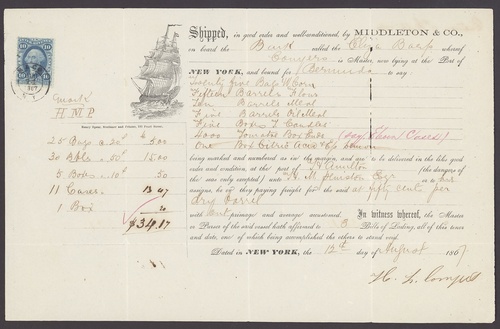 Shipped, in good order and well-conditioned, by MIDDLETON & CO.,
on board the Bark called the Eliza Barss whereof
Conyers is Master, now lying at the Port of
NEW YORK, and bound for Bermuda to say:
Twenty five Bags Corn
Fifteen Barrels Flour
Ten Barrels Meal
Five Barrels Oil Meal
Five Boxes T Candles
4000 Tomatoe Box Ends
One Box
mark'd
H M P
25 Bags a 20 5,00
30 Bbls 50 15,00
5 Boxes 10 50
11 Cases 13 47
1 Box
$34.17
being marked and numbered as in the margin, and are to be delivered in the like good
order and condition, at the port of Hamilton (the dangers of
the seas only excepted) unto
assigns, he or they paying freight for the said at fifty cents per
dry barrel
with primage and average accustomed. In witness whereof, the Master
or Purser of the said vessel hath affirmed to 3 Bills of Lading, all of this tenor
and date, one of which being accomplished the others to stand void.
Dated in NEW YORK, the 12th day of August 1867